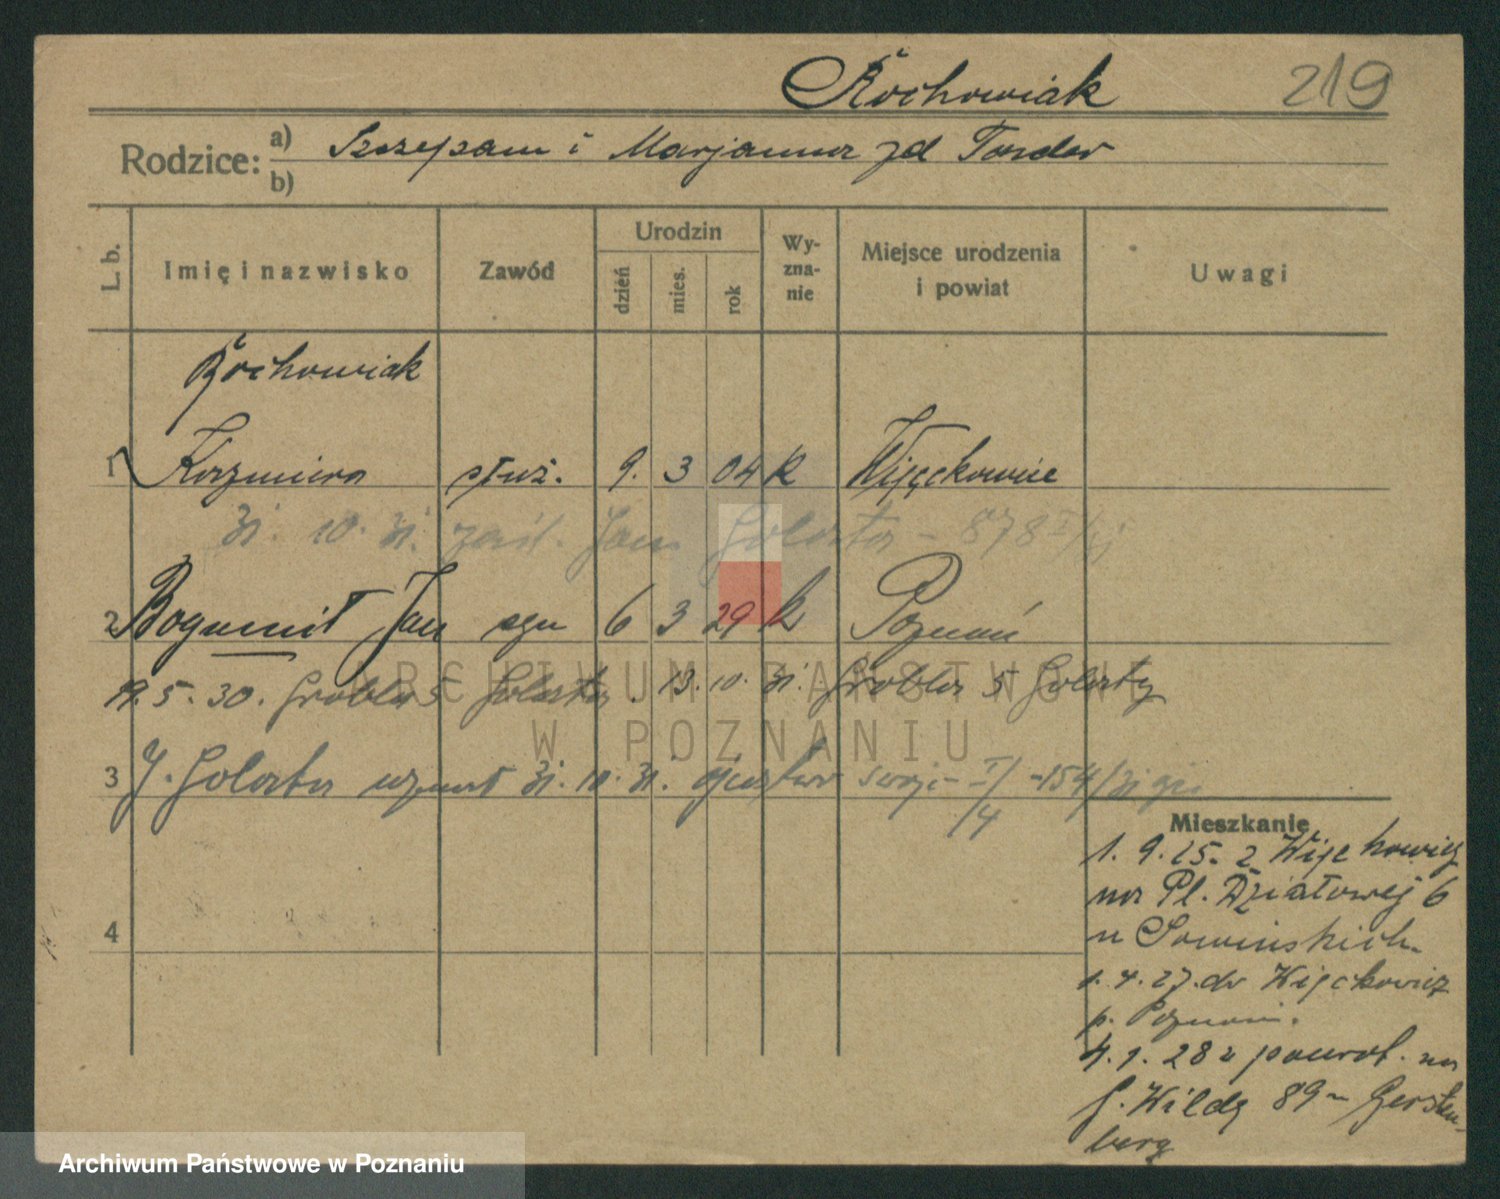 Rochowiak 219
Rodzice: a) Szczepan i Marjanna zd Tonder
b)
L. b. Imię i nazwisko Zawód Urodzin dzień mies. rok Wy-zna-nie Miejsce urodzenia i powiat Uwagi
Rochowiak
1 Kazmiera służ. 9. 3 04 k Więckowice
31. 10. 31. zaśl. Jan Golasta - 878
2 Bogumił Jan syn 6 3 29 k Poznań
19. 5. 30. Grobla 5 Golasta. 13. 10. 31. Grobla 5 Golasty
3 J. Golasta uznał 31. 10. 31. ojcostwo swoje I/4 - 154/31
Mieszkanie
1. 9. 25. z Więckowic
na Pl. Działowej 6
u Sowińskich.
1. 4. 27. do Więckowic
p. Poznań.
4. 1. 28 z powrot. na
G. Wildę 89 - Gersten-
berg
4
ARCHIWUM PAŃSTWOWE
W POZNANIU
Archiwum Państwowe w Poznaniu